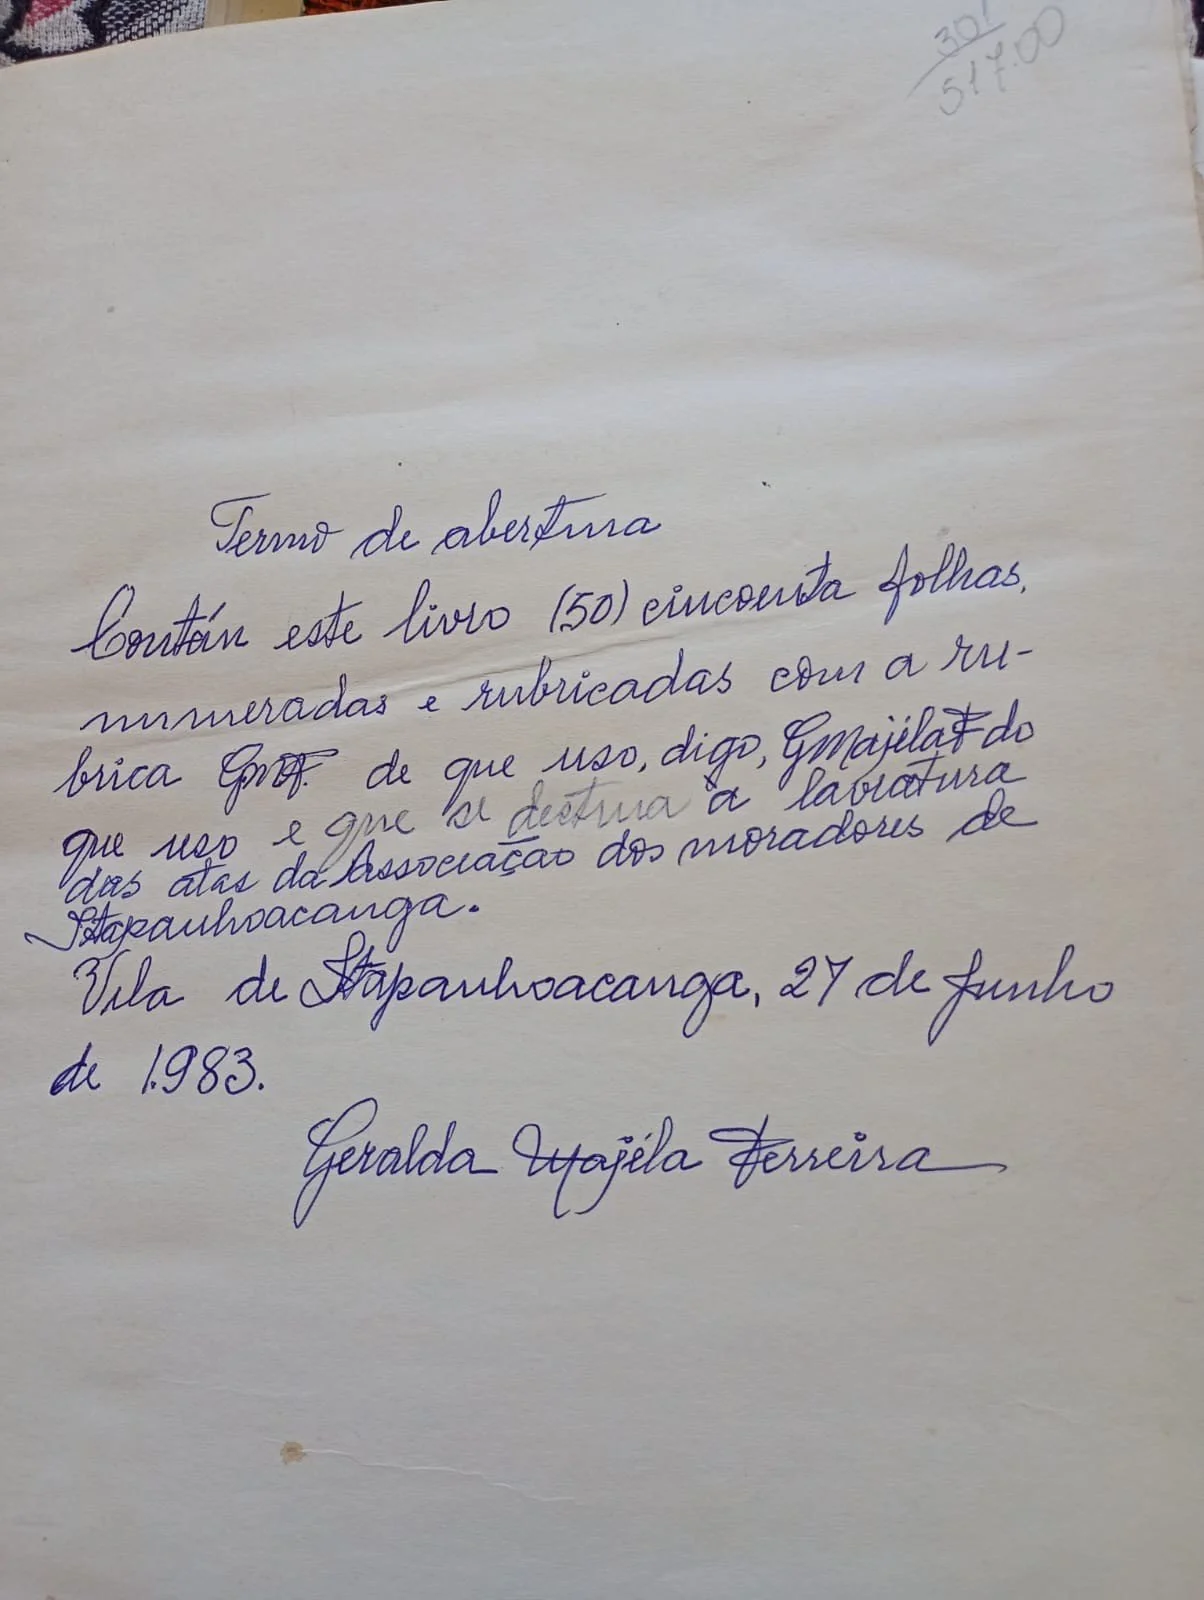 301
517.00
Termo de abertura
Contán este livro (50) cincoenta folhas,
numeradas e rubricadas com a ru-
brica GMF. de que uso, digo, GMajélaF do
que uso e que se destina a lavratura
das atas da Associação dos moradores de
Itapanhoacanga.
Vila de Itapanhoacanga, 27 de Junho
de 1.983.
Geralda Majéla Ferreira